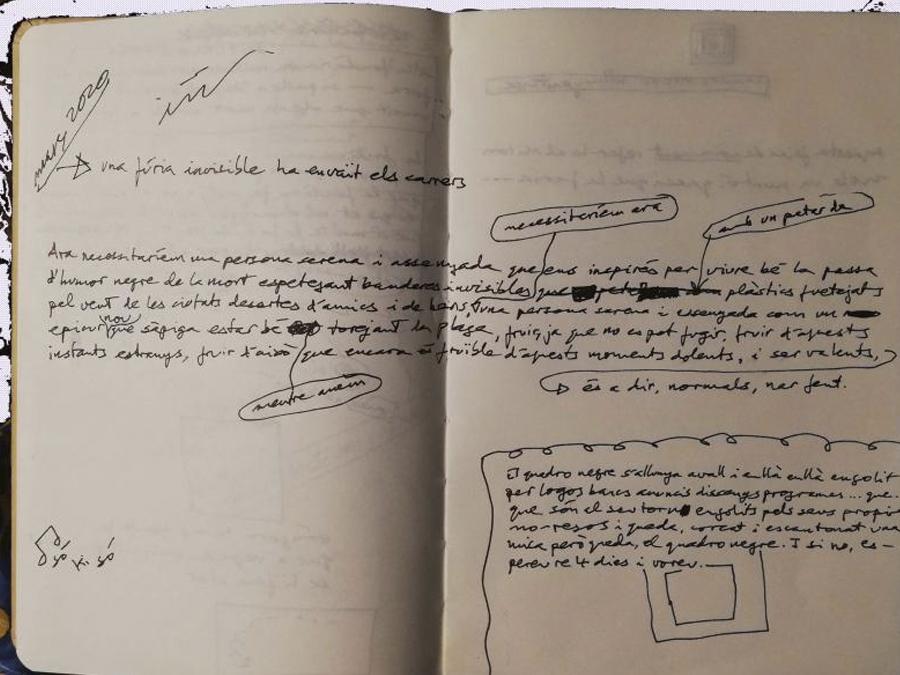 març 2020
una fúria invisible ha envaït els carrers
necessitaríem ara
amb un peter de
Ara necessitaríem una persona serena i assenyada que ens inspirés per viure bé la passa
d'humor negre de la mort espetegant banderes invisibles que plàstics fuetejats
pel vent de les ciutats desertes d'amics i de bars, una persona serena i assenyada com un
nou
epicuri que sàpiga estar bé torejant la plaga, fruir, ja que no es pot fugir, fruir d'aquests
instants estranys, fruir d'això que encara és fruïble d'aquests moments dolents, i ser valents,
mentre anem
és a dir, normals, nar fent.
El quadro negre s'allunya avall i enllà enllà engolit
per logos bancs anuncis dissenys programes... que.
que són al seu torn engolits pels seus propis
no-resos i queda, corcat i escantonat una
mica però queda, el quadro negre. I si no, es-
pereu-re 4 dies i voreu.